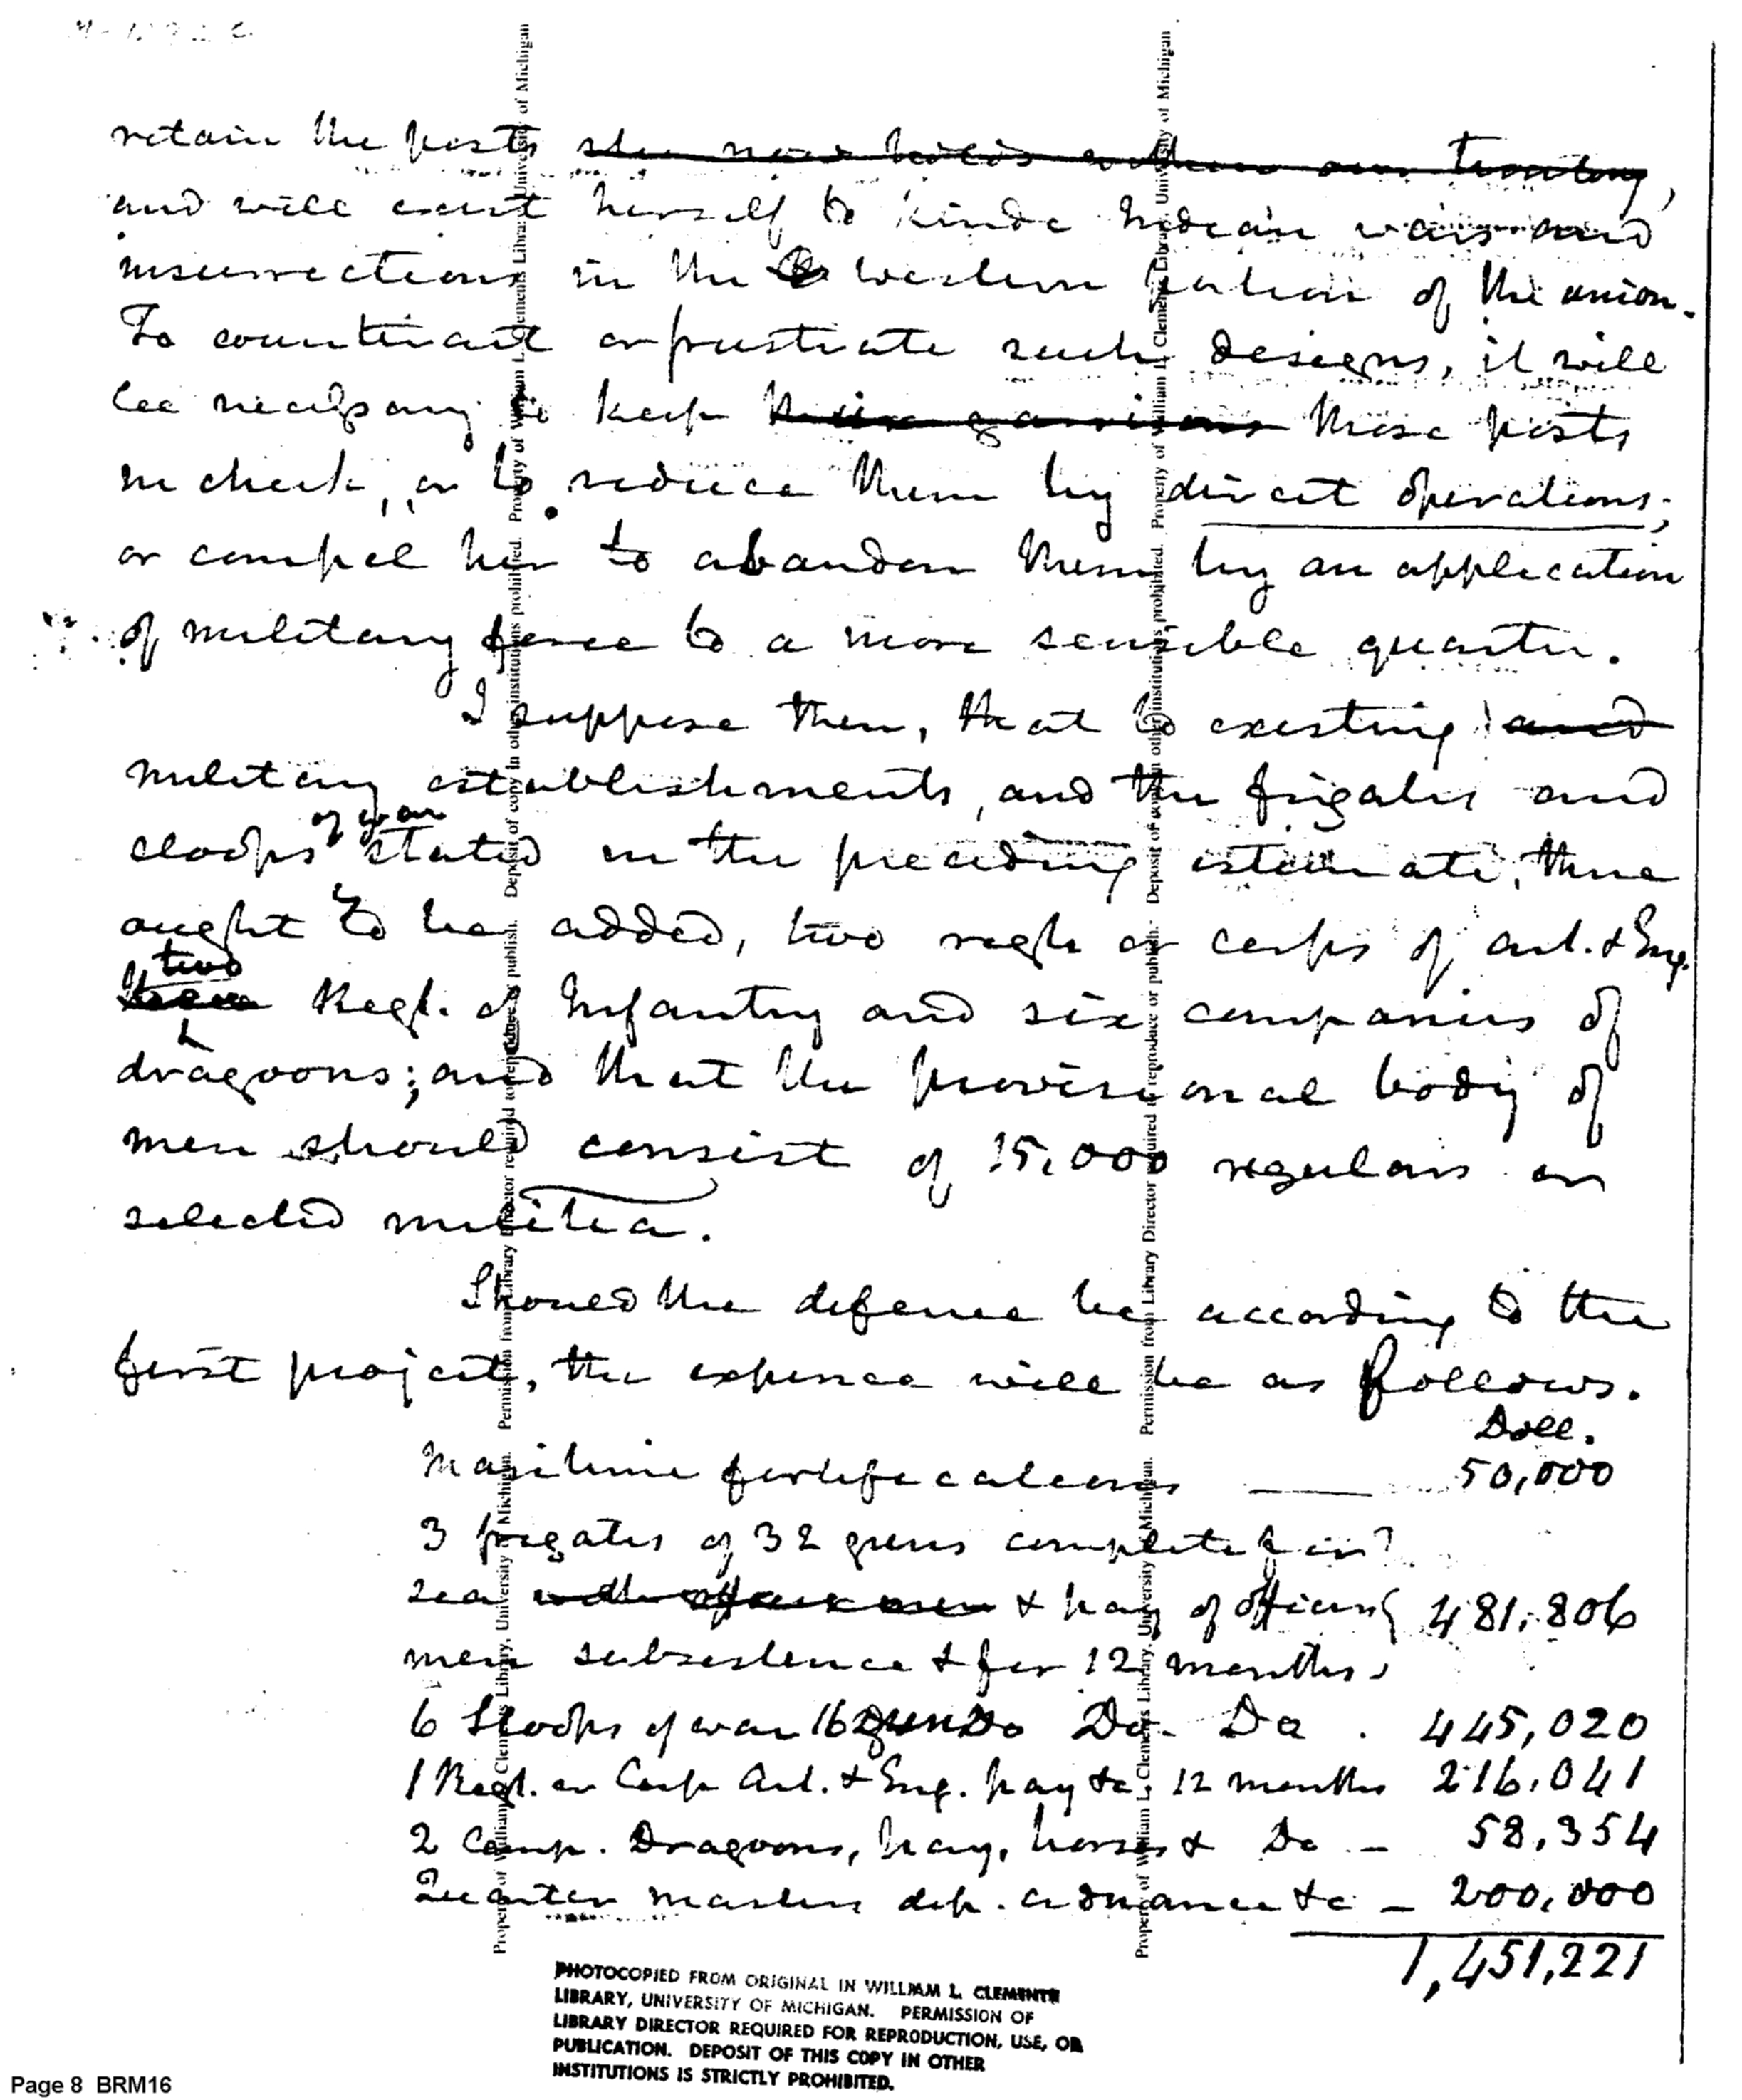 retain the posts she now holds within our territory,
and will exert herself to kindle Indian wars and
insurrections in the western portion of the union.
To counteract or frustrate such designs, it will
be necessary to keep their garrisons those posts
in check, or to reduce them by direct operations;
or compel her to abandon them by an application
of military force to a more sensible quarter.
I suppose then, that to existing and
military establishments, and the frigates and
of war
sloops stated in the preceding estimate, there
ought to be added, two regts or corps of art. & Eng.
two
Regt. of Infantry and six companies of
dragoons; and that the provisional body of
men should consist of 15,000 regulars or
selected militia.
Should the defence be according to the
first project, the expence will be as follows.
Doll.
Maritime fortifications — 50,000
3 frigates of 32 guns complete for
sea & pay of officers 481,806
men subsistence & for 12 months
6 Sloops of war 16 Guns Do Do. Do. 445,020
1 Regt. or Corp Art. & Eng. pay &c. 12 months 216,041
2 Comp. Dragoons, pay, horses & Do — 58,354
Quarter masters dep. ordnance &c — 200,000
1,451,221
Property of William L. Clements Library, University of Michigan. Permission from Library Director required to reproduce or publish. Deposit of copy in other institutions prohibited. Property of William L. Clements Library, University of Michigan
Property of William L. Clements Library, University of Michigan. Permission from Library Director required to reproduce or publish. Deposit of copy in other institutions prohibited. Property of William L. Clements Library, University of Michigan
PHOTOCOPIED FROM ORIGINAL IN WILLIAM L. CLEMENTS
LIBRARY, UNIVERSITY OF MICHIGAN. PERMISSION OF
LIBRARY DIRECTOR REQUIRED FOR REPRODUCTION, USE, OR
PUBLICATION. DEPOSIT OF THIS COPY IN OTHER
INSTITUTIONS IS STRICTLY PROHIBITED.
Page 8 BRM16